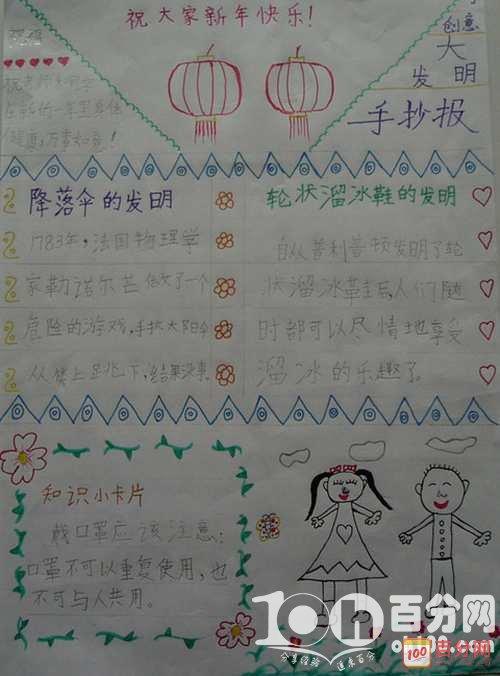 祝大家新年快乐!
祝福
祝老师和同学
在新的一年里身体
健康,万事如意!
创意
大
发明
手抄报
降落伞的发明
1783年,法国物理学
家勒诺尔芒做了一个
危险的游戏,手执太阳伞
从楼上跳下,结果没事。
轮状溜冰鞋的发明
自从普利普顿发明了轮
状溜冰鞋后,人们随
时都可以尽情地享受
溜冰的乐趣了
知识小卡片
戴口罩应该注意:
口罩不可以重复使用,也
不可与人共用。
101百分网
分享经验 速来百分
100
百分网